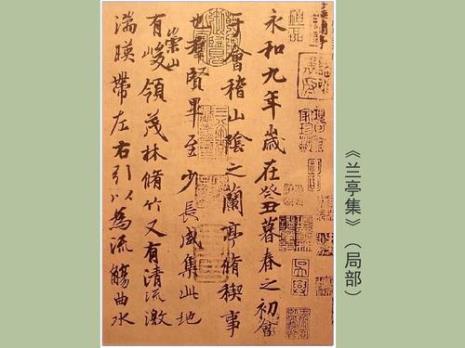 《兰亭集》（局部）
永和九年歲在癸丑暮春之初會
于會稽山陰之蘭亭脩稧事
也羣賢畢至少長咸集此地
有崇山峻領茂林脩竹又有清流激
湍暎帶左右引以為流觴曲水